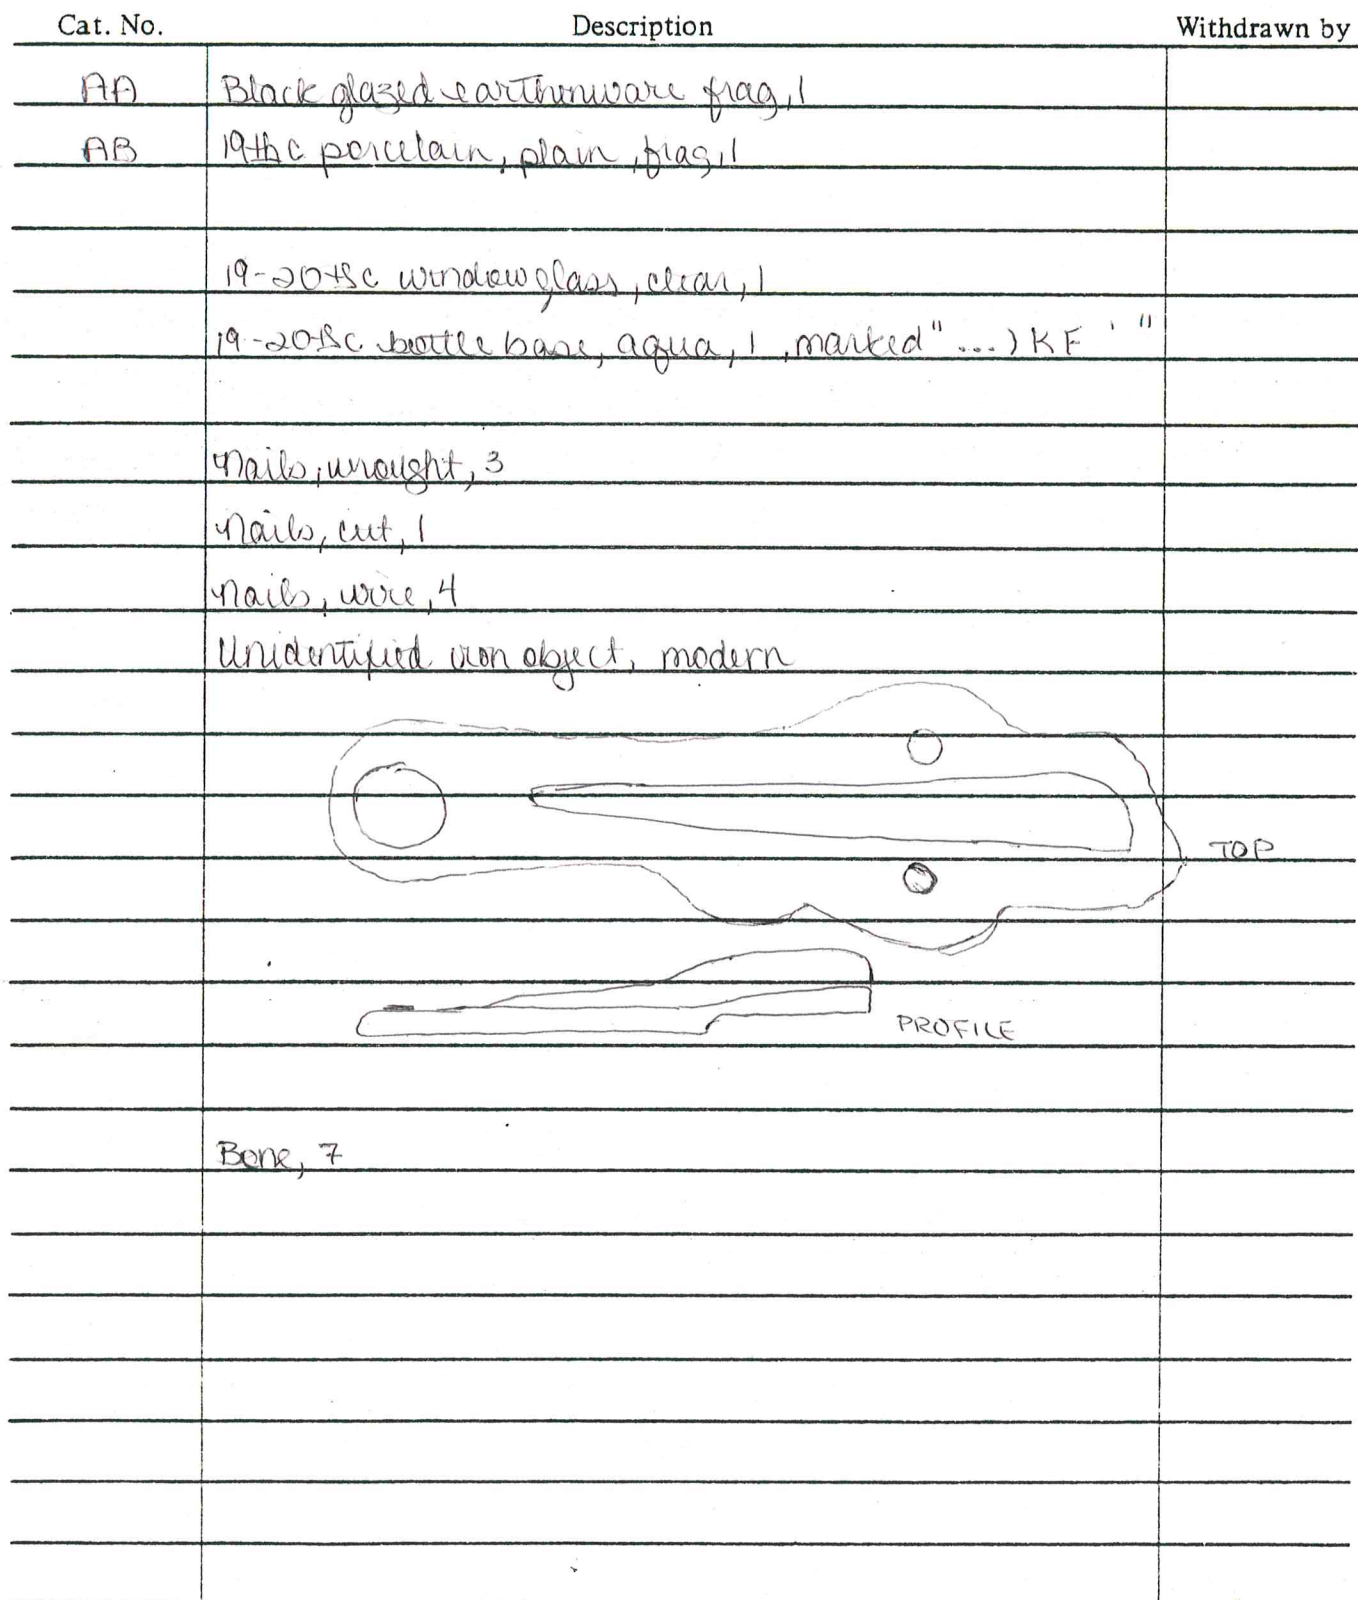 Cat. No. Description Withdrawn by
AA Black glazed earthenware frag, 1
AB 19thc porcelain, plain, frag, 1
19-20thc window glass, clear, 1
19-20thc bottle base, aqua, 1, marked "...) K F ' "
Nails, wrought, 3
Nails, cut, 1
Nails, wire, 4
Unidentified iron object, modern
TOP
PROFILE
Bone, 7